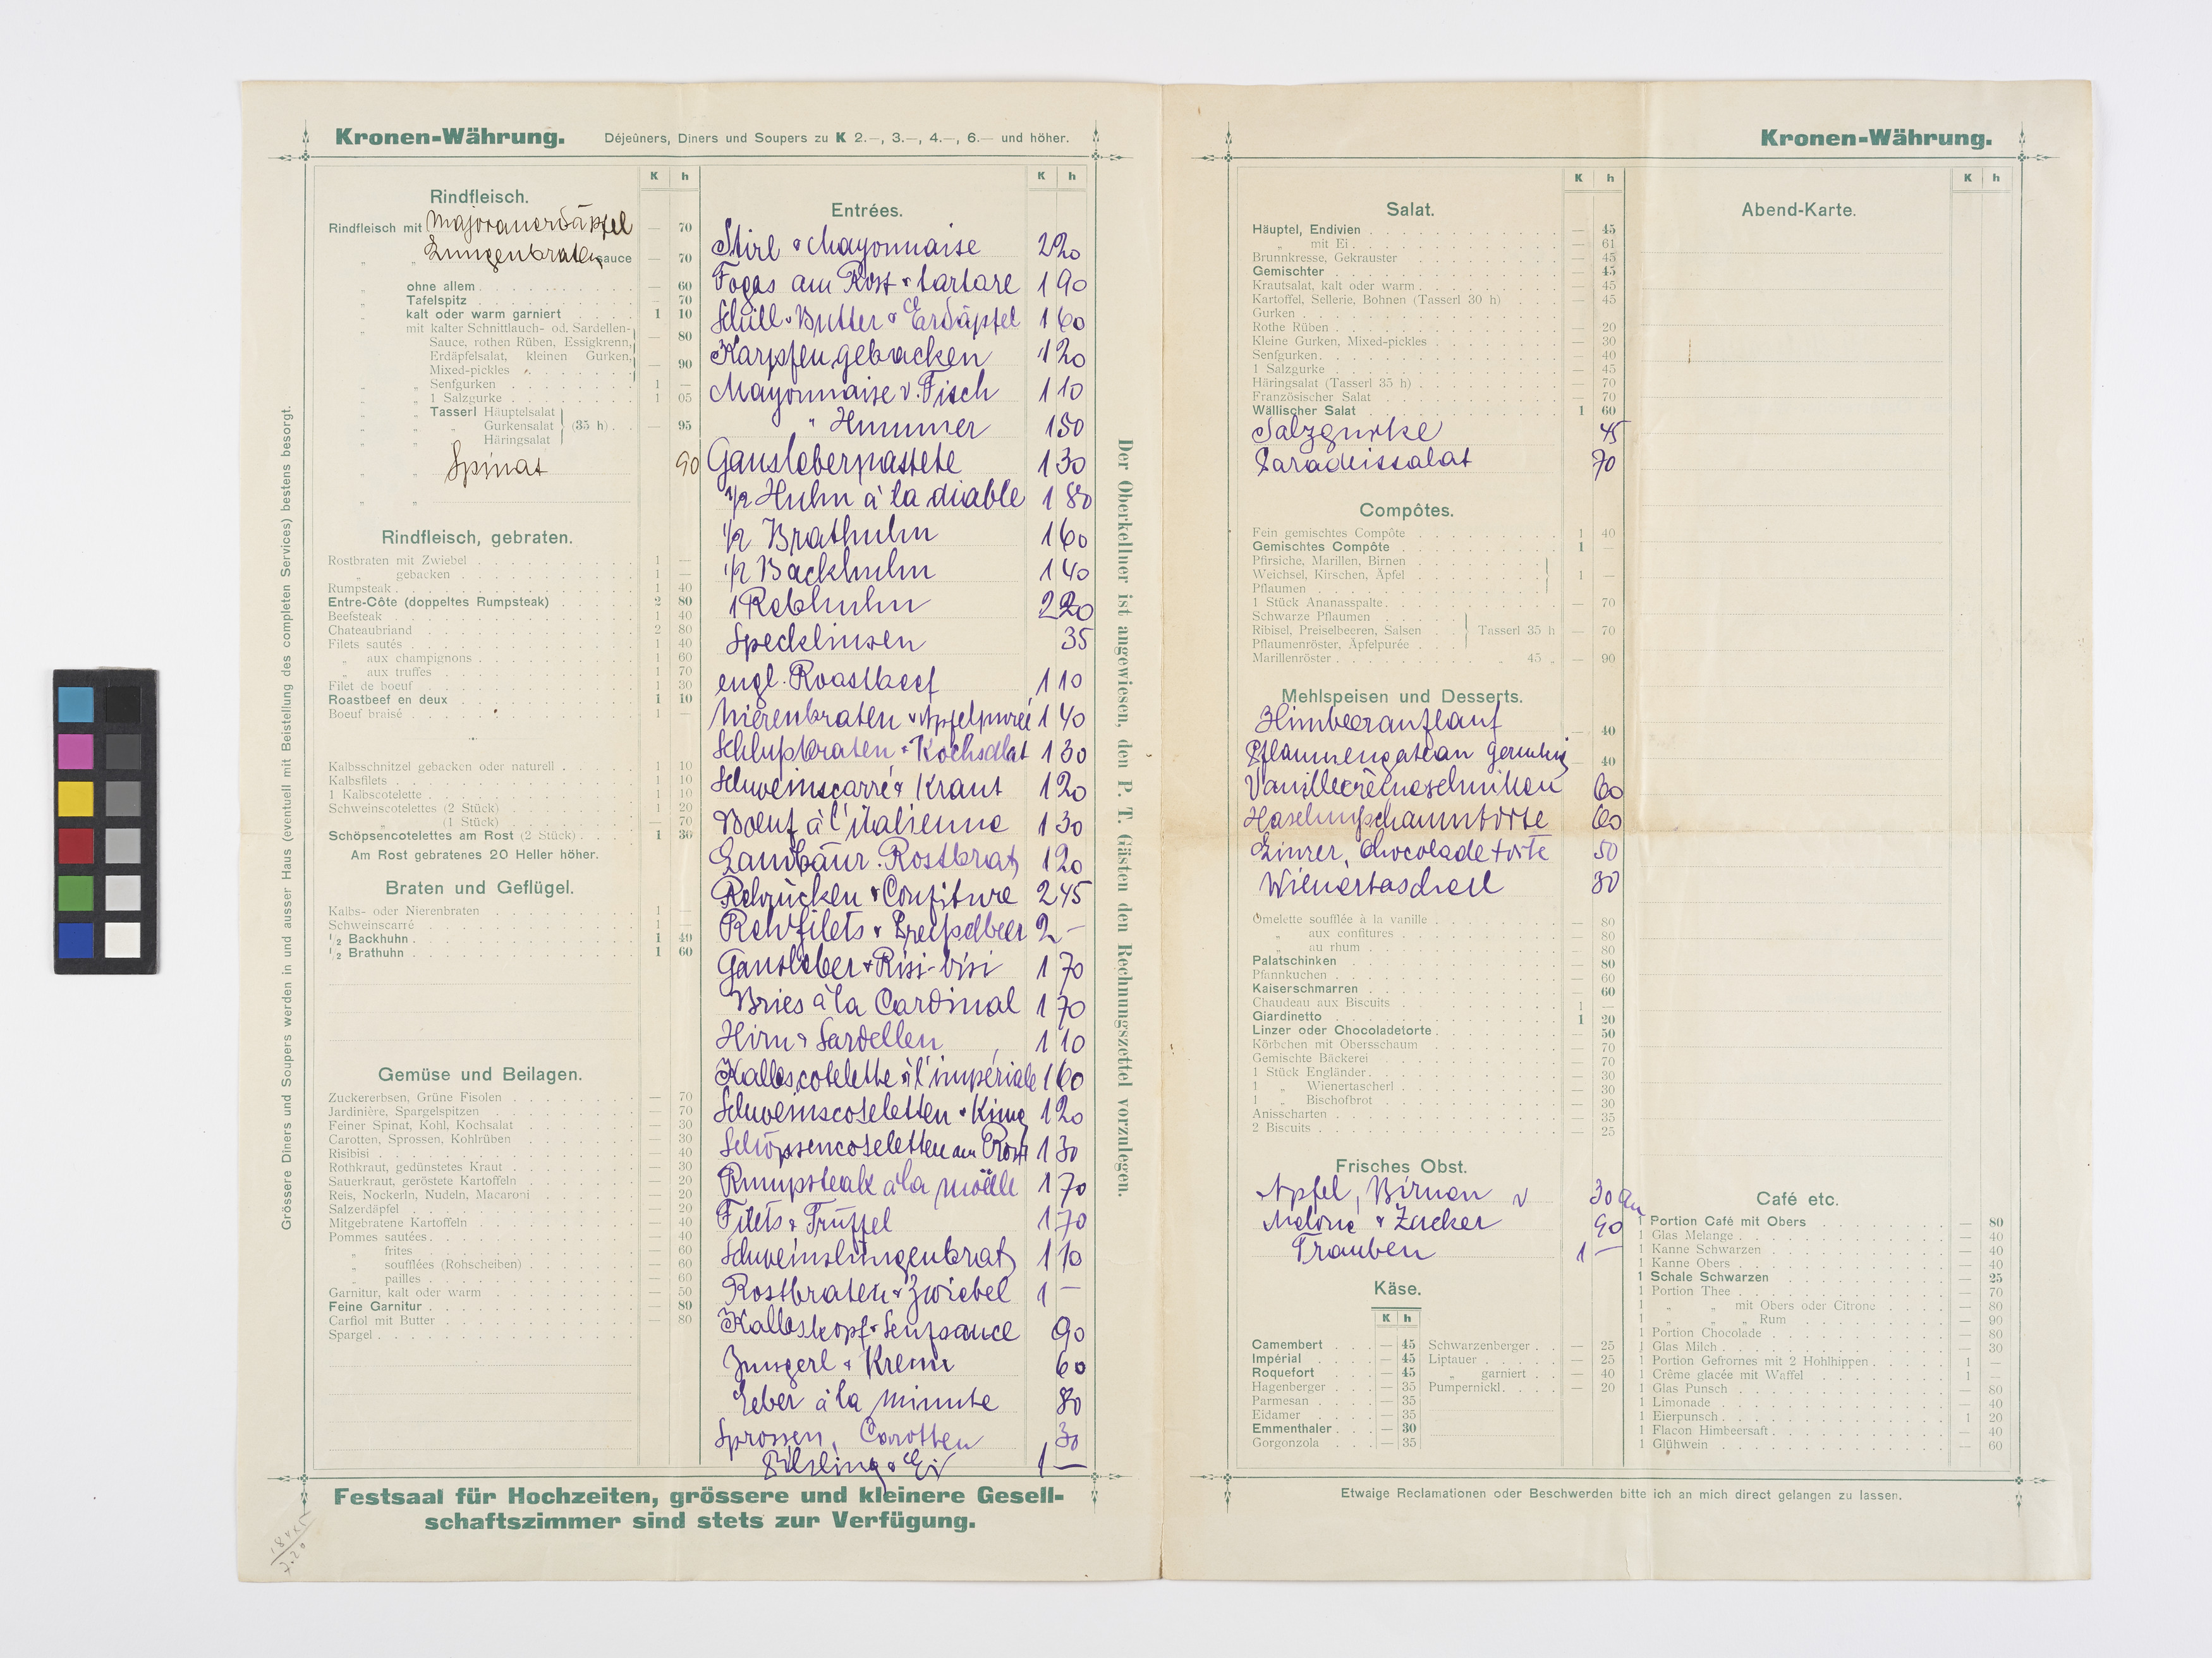 Kronen-Währung.
Déjeûners, Dîners und Soupers zu K 2.—, 3.—, 4.—, 6.— und höher.
Grössere Diners und Soupers werden in und ausser Haus (eventuell mit Beistellung des completen Services) bestens besorgt.
K h
Rindfleisch.
Rindfleisch mit Majoranerdäpfel — 70
„ „ Lungenbratensauce — 70
„ ohne allem — 60
„ Tafelspitz — 70
„ kalt oder warm garniert 1 10
„ mit kalter Schnittlauch- od. Sardellen-
Sauce, rothen Rüben, Essigkrenn, — 80
Erdäpfelsalat, kleinen Gurken,
Mixed-pickles — 90
„ „ Senfgurken 1 —
„ „ 1 Salzgurke 1 05
„ „ Tasserl Häuptelsalat
„ „ „ Gurkensalat (35 h) — 95
„ „ Häringsalat
„ „ Spinat 90
„ „
Rindfleisch, gebraten.
Rostbraten mit Zwiebel 1 —
„ gebacken 1 —
Rumpsteak 1 40
Entre-Côte (doppeltes Rumpsteak) 2 80
Beefsteak 1 40
Chateaubriand 2 80
Filets sautés 1 40
„ aux champignons 1 60
„ aux truffes 1 70
Filet de boeuf 1 30
Roastbeef en deux 1 10
Boeuf braisé 1 —
Kalbsschnitzel gebacken oder naturell 1 10
Kalbsfilets 1 10
1 Kalbscotelette 1 10
Schweinscotelettes (2 Stück) 1 20
„ (1 Stück) — 70
Schöpsencotelettes am Rost (2 Stück) 1 30
Am Rost gebratenes 20 Heller höher.
Braten und Geflügel.
Kalbs- oder Nierenbraten 1 —
Schweinscarré 1 —
1/2 Backhuhn 1 40
1/2 Brathuhn 1 60
Gemüse und Beilagen.
Zuckererbsen, Grüne Fisolen — 70
Jardinière, Spargelspitzen — 70
Feiner Spinat, Kohl, Kochsalat — 30
Carotten, Sprossen, Kohlrüben — 30
Risibisi — 40
Rothkraut, gedünstetes Kraut — 30
Sauerkraut, geröstete Kartoffeln — 20
Reis, Nockerln, Nudeln, Macaroni — 20
Salzerdäpfel — 20
Mitgebratene Kartoffeln — 40
Pommes sautées — 40
„ frites — 60
„ soufflées (Rohscheiben) — 60
„ pailles — 60
Garnitur, kalt oder warm — 50
Feine Garnitur — 80
Carfiol mit Butter — 80
Spargel
K h
Entrées.
Stirl & Mayonnaise 2 20
Fogas am Rost & tartare 1 90
Schill & Butter & Erdäpfel 1 60
Karpfen gebacken 1 20
Mayonnaise v. Fisch 1 10
„ Hummer 1 50
Gansleberpastete 1 30
1/2 Huhn à la diable 1 80
1/2 Brathuhn 1 60
1/2 Backhuhn 1 40
1 Rebhuhn 2 20
Specklinsen 35
engl. Roastbeef 1 10
Nierenbraten & Apfelpurée 1 40
Schlußbraten & Kochsalat 1 30
Schweinscarré & Kraut 1 20
Boeuf à l'italienne 1 30
Landbäur. Rostbrat 1 20
Rehrücken & Confiture 2 45
Rehfilets & Preißelbeer 2 —
Gansleber & Risi-bisi 1 70
Bries à la Cardinal 1 70
Hirn & Sardellen 1 10
Kalbscotelette à l'impériale 1 60
Schweinscoteletten & 1 20
Schöpsencoteletten am Rost 1 30
Rumpsteak à la moëlle 1 70
Filets & Trüffel 1 70
Schweinslungenbrat 1 10
Rostbraten & Zwiebel 1 —
Kalbskopf & Senfsauce 90
Züngerl & Krenn 60
Leber à la minute 80
Sprossen, Carotten 30
Pilzling & Ei 1 —
Der Oberkellner ist angewiesen, den P. T. Gästen den Rechnungszettel vorzulegen.
Festsaal für Hochzeiten, grössere und kleinere Gesell-
schaftszimmer sind stets zur Verfügung.
Kronen-Währung.
K h
Salat.
Häuptel, Endivien — 45
„ mit Ei — 61
Brunnkresse, Gekrauster — 45
Gemischter — 45
Krautsalat, kalt oder warm — 45
Kartoffel, Sellerie, Bohnen (Tasserl 30 h) — 45
Gurken
Rothe Rüben — 20
Kleine Gurken, Mixed-pickles — 30
Senfgurken — 40
1 Salzgurke — 45
Häringsalat (Tasserl 35 h) — 70
Französischer Salat — 70
Wällischer Salat 1 60
Salzgurke 45
Paradeissalat 70
Compôtes.
Fein gemischtes Compôte 1 40
Gemischtes Compôte 1 —
Pfirsiche, Marillen, Birnen
Weichsel, Kirschen, Äpfel 1 —
Pflaumen
1 Stück Ananasspalte — 70
Schwarze Pflaumen
Ribisel, Preiselbeeren, Salsen Tasserl 35 h — 70
Pflaumenröster, Äpfelpurée
Marillenröster 45 „ — 90
Mehlspeisen und Desserts.
Himbeerauflauf 40
Pflaumengateau 40
Vanillecrêmeschnitten 60
Haselnußschaumtorte 60
Linzer, Chocoladetorte 50
Wienertascherl 30
Omelette soufflée à la vanille — 80
„ aux confitures — 80
„ au rhum — 80
Palatschinken — 80
Pfannkuchen — 60
Kaiserschmarren — 60
Chaudeau aux Biscuits 1 —
Giardinetto 1 20
Linzer oder Chocoladetorte — 50
Körbchen mit Obersschaum — 70
Gemischte Bäckerei — 70
1 Stück Engländer — 30
1 „ Wienertascherl — 30
1 „ Bischofbrot — 30
Anisscharten — 35
2 Biscuits — 25
Frisches Obst.
Apfel, Birnen 30
Melone & Zucker 90
Trauben 1 —
Käse.
K h
Camembert — 45 Schwarzenberger — 25
Impérial — 45 Liptauer — 25
Roquefort — 45 „ garniert — 40
Hagenberger — 35 Pumpernickl — 20
Parmesan — 35
Eidamer — 35
Emmenthaler — 30
Gorgonzola — 35
Kronen-Währung.
K h
Abend-Karte.
Café etc.
1 Portion Café mit Obers — 80
1 Glas Melange — 40
1 Kanne Schwarzen — 40
1 Kanne Obers — 40
1 Schale Schwarzen — 25
1 Portion Thee — 70
1 „ „ mit Obers oder Citrone — 80
1 „ „ „ Rum — 90
1 Portion Chocolade — 80
1 Glas Milch — 30
1 Portion Gefrornes mit 2 Hohlhippen 1 —
1 Crème glacée mit Waffel 1 —
1 Glas Punsch — 80
1 Limonade — 40
1 Eierpunsch 1 20
1 Flacon Himbeersaft — 40
1 Glühwein — 60
Etwaige Reclamationen oder Beschwerden bitte ich an mich direct gelangen zu lassen.